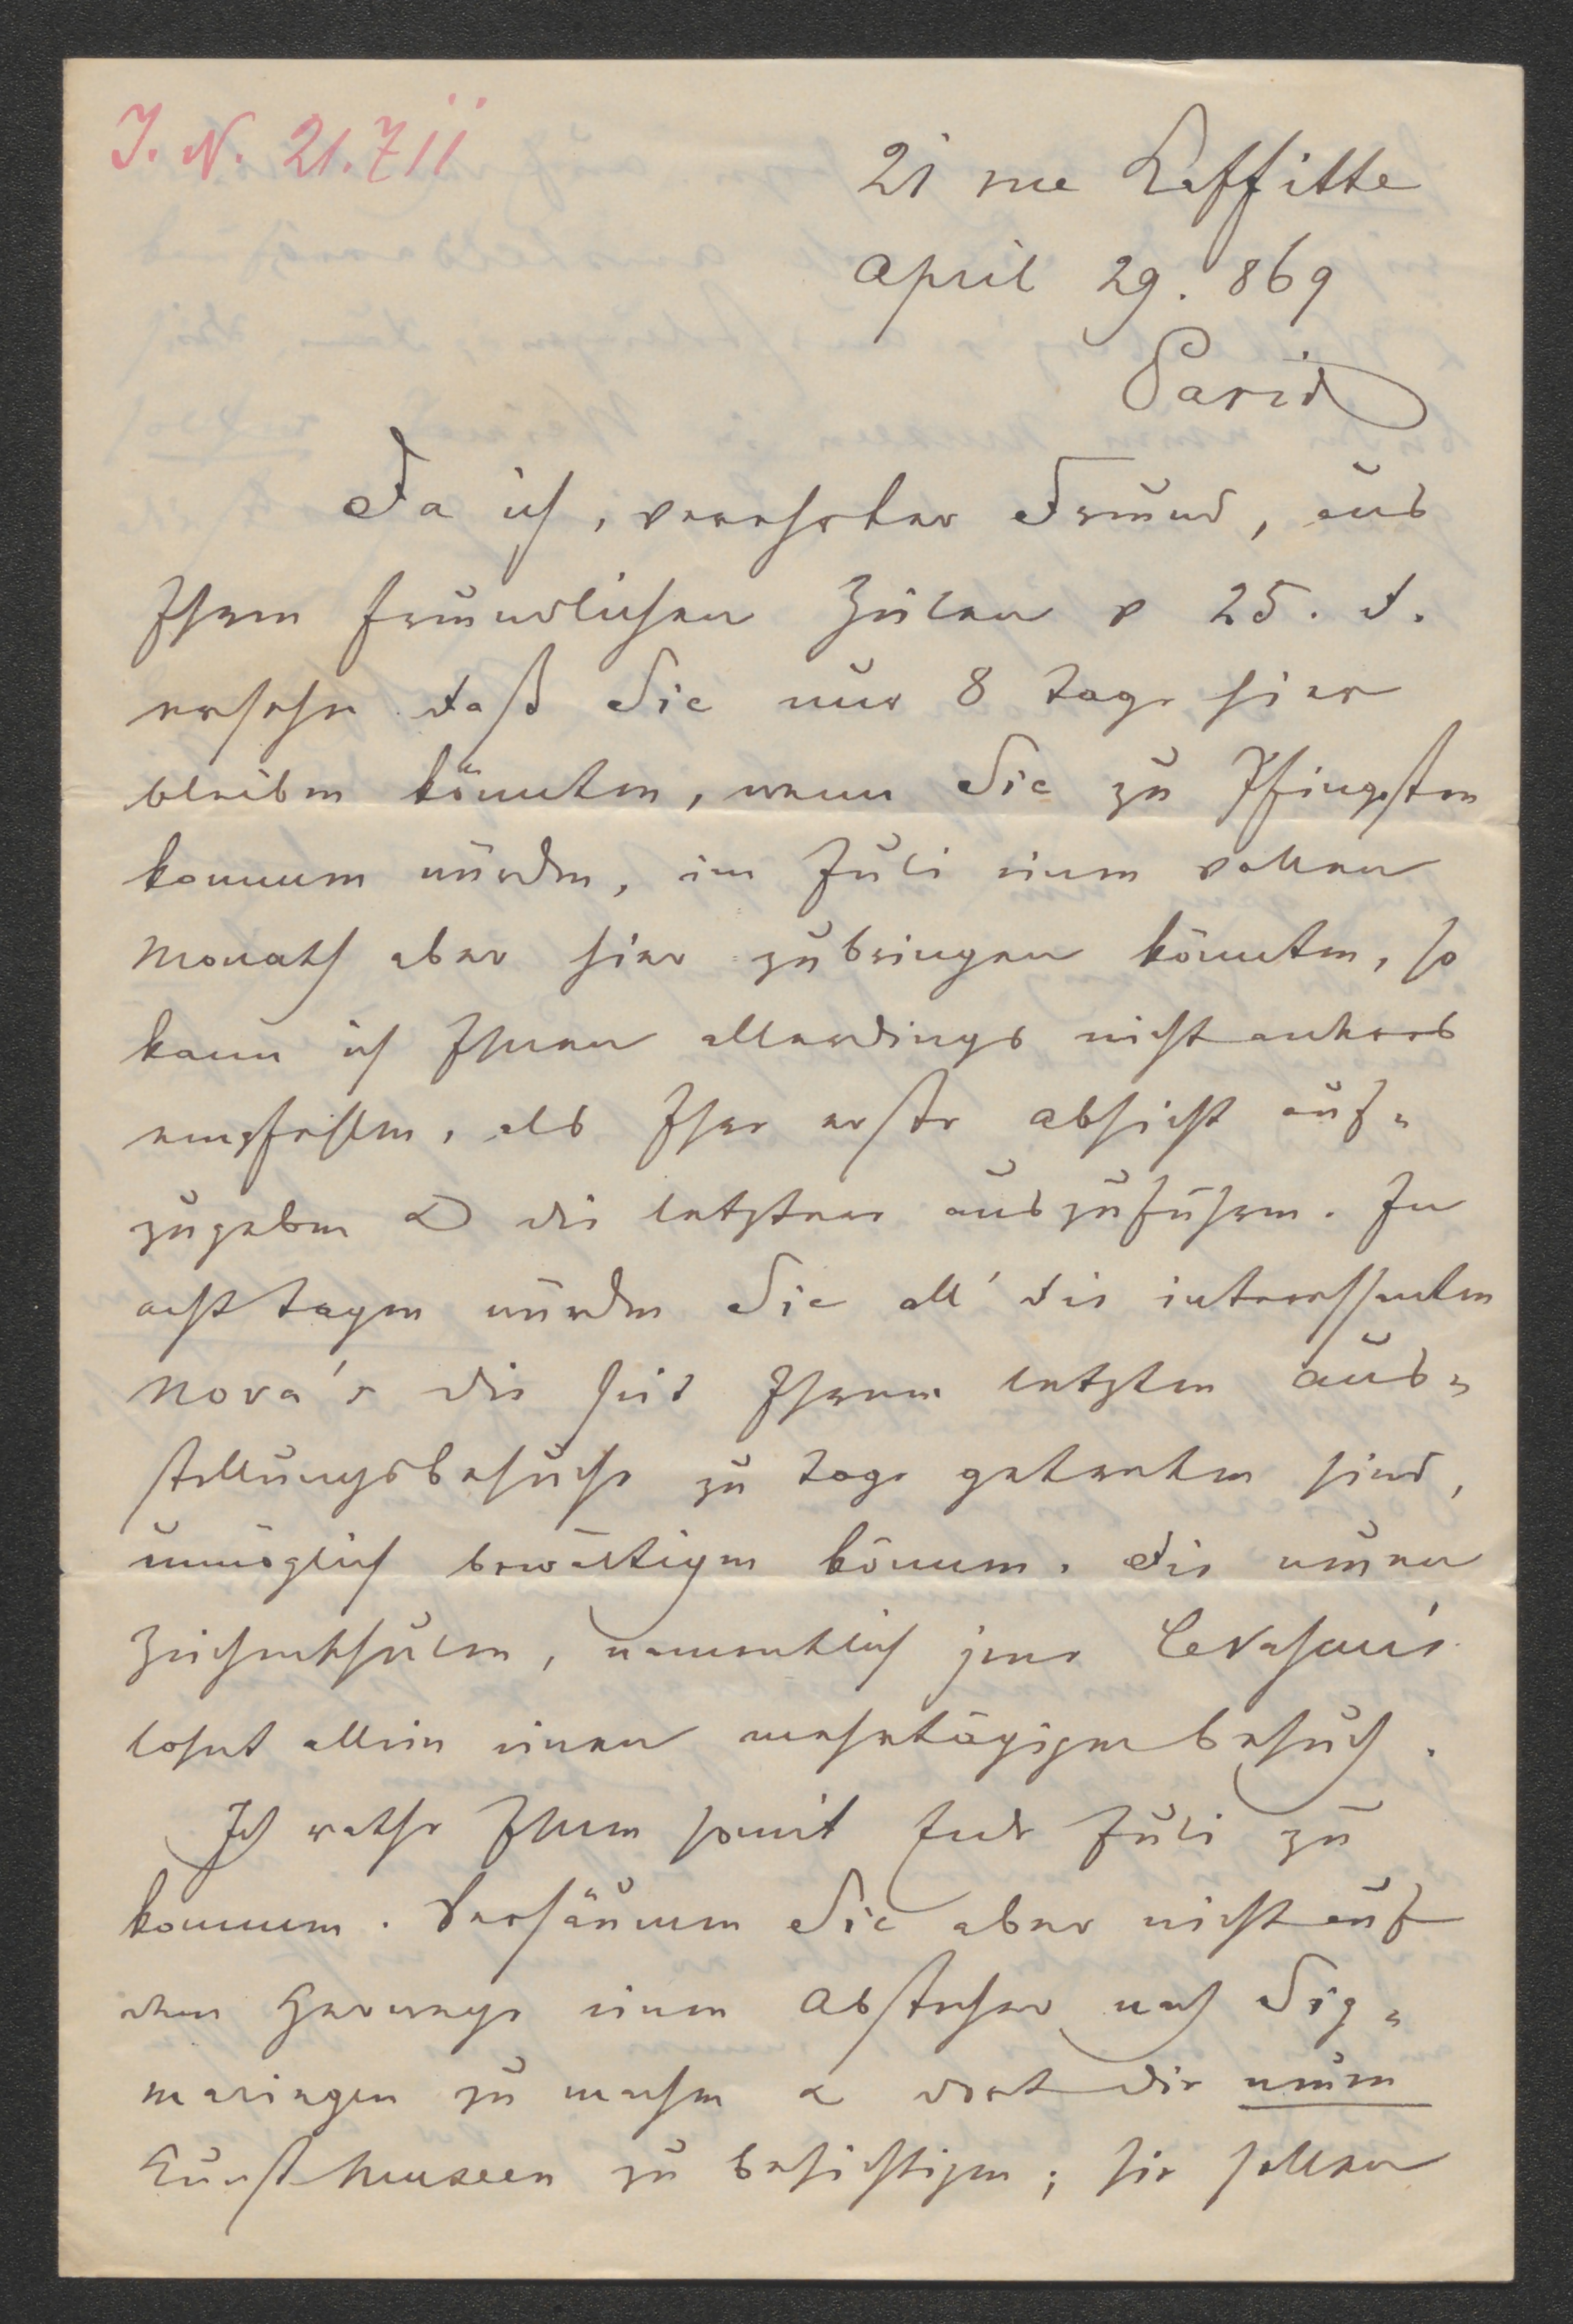 J. N. 21.711
21 rue Laffitte
April 29. 869
Paris
Da ich, verehrter Freund, aus
Ihren freundlichen Zeilen v 25. d.
ersehe daß Sie nur 8 Tage hier
bleiben könnten, wenn Sie zu Pfingsten
kommen würden, im Juli einen vollen
Monath aber hier zubringen könnten, so
kann ich Ihnen allerdings nicht anders
empfehlen, als Ihre erste Absicht auf-
zugeben & die letztere auszuführen. In
acht Tagen würden Sie all' die interessanten
Nova's die seit Ihrem letzten Aus-
stellungsbesuche zu Tage getreten sind,
unmöglich bewältigen können. Die neuen
Zeichenschulen, namentlich jene
lohnt allein einen mehrtägigen Besuch.
Ich rathe Ihnen somit Ende Juli zu
kommen. Versäumen Sie aber nicht auf
dem Herwege einen Abstecher nach Sig-
maringen zu machen & dort die neuen
Kunst Museen zu besichtigen; sie sollen